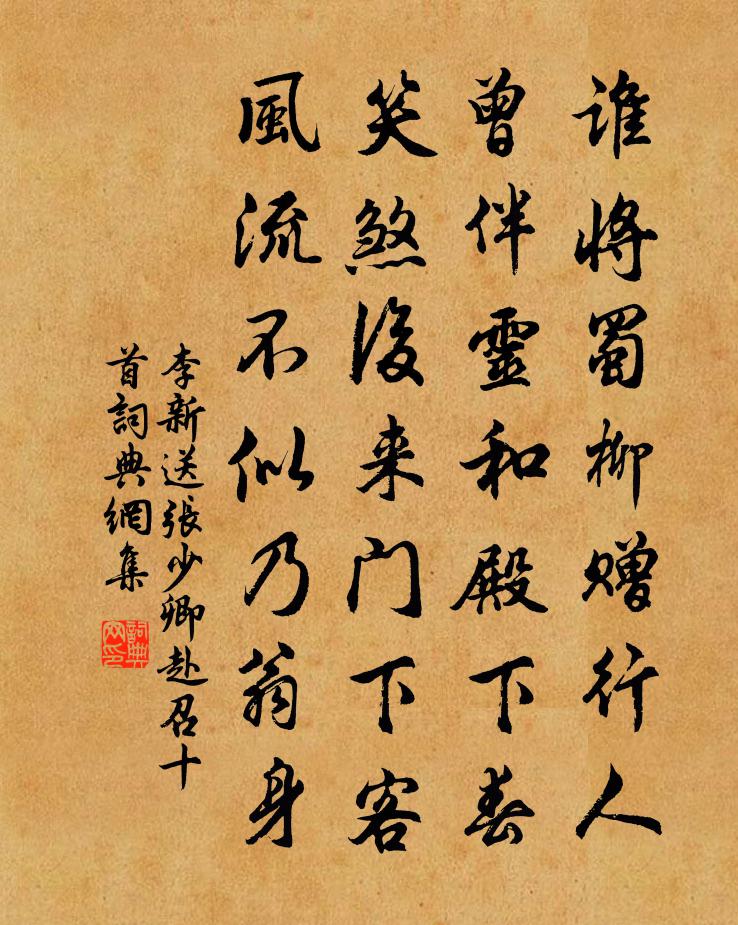 谁將蜀柳赠行人
曾伴靈和殿下春
笑煞後来门下客
風流不似乃翁身
李新送張少卿赴召十
首詞典網集
詞典
网印